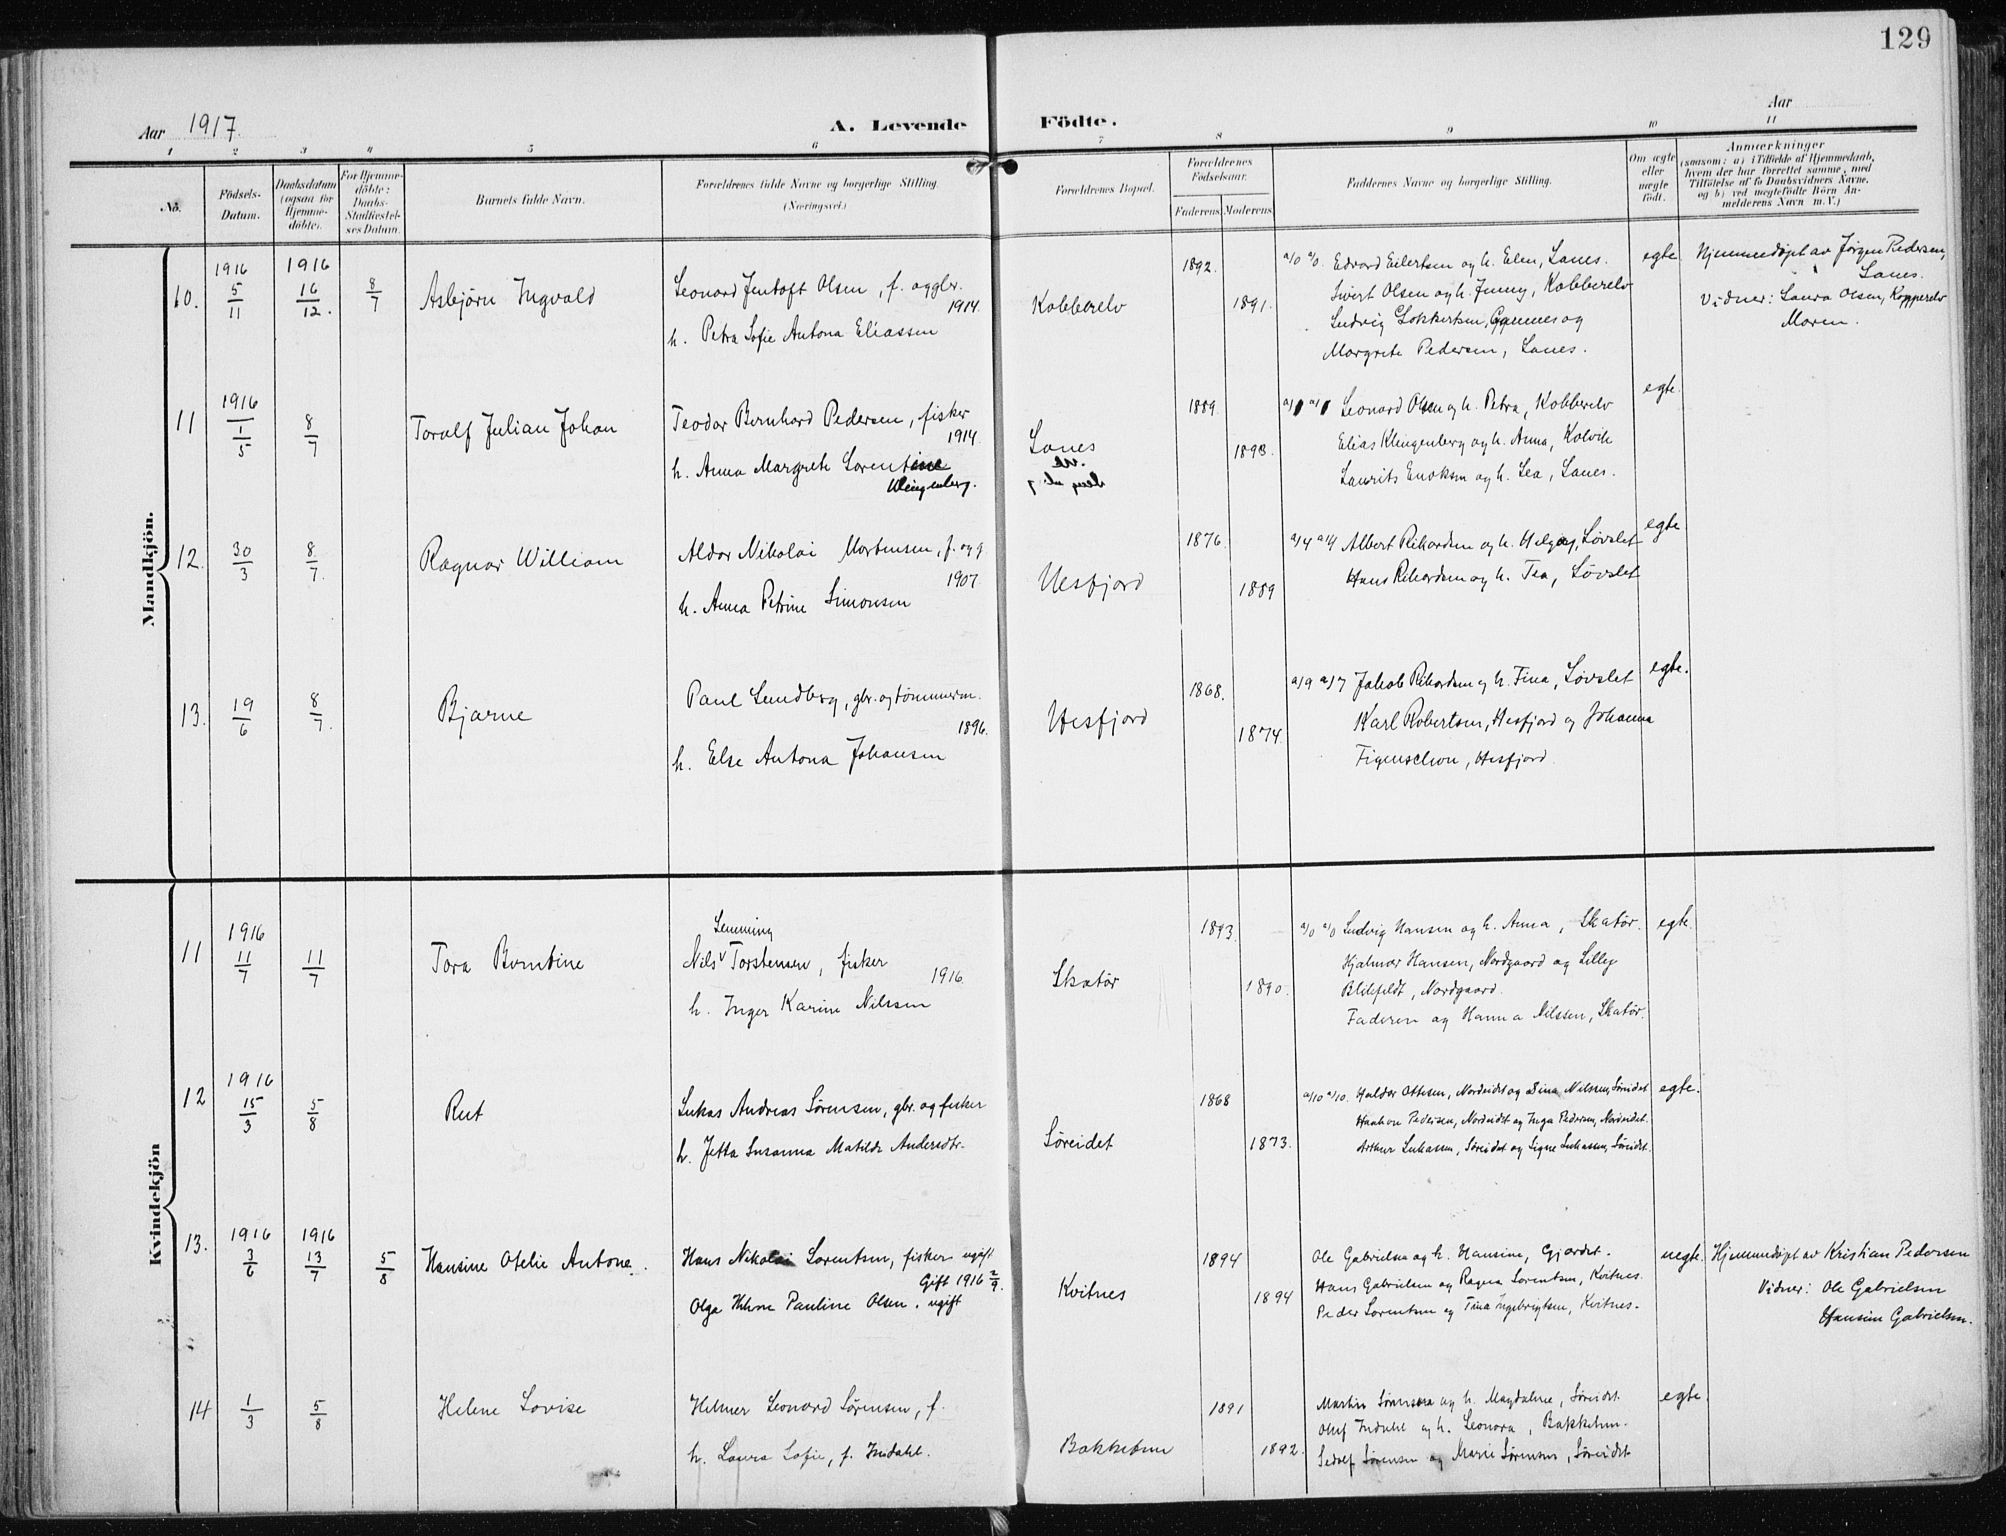 129
Aar 1917.
A. Levende Födte.
Aar
1 2 3 4 5 6 7 8 9 10 11
No.
Födsels-
Datum.
Daabsdatum
(ogsaa for
Hjemme-
döbte).
For Hjemme-
döbte:
Daabs-
Stadfæstel-
ses Datum.
Barnets fulde Navn.
Forældrenes fulde Navne og borgerlige Stilling.
(Næringsvei.)
Forældrenes Bopæl.
Forældrenes
Födselsaar.
Faderens Moderens
Faddernes Navne og borgerlige Stilling.
Om ægte
eller
uægte
födt.
Anmærkninger
(saasom: a) i Tilfælde af Hjemmedaab,
hvem der har forrettet samme, med
Tilföielse af to Daabsvidners Navne,
og b) ved uægtefödte Börn An-
melderens Navn m. V.)
Mandkjön.
10.
1916
5/11
1916
16/12.
8/7
Asbjörn Ingvald
Leonard Jentoft Olsen, f. og gbr.
1914.
h. Petra Sofie Antona Eliassen
Kobberelv
1892.
1891.
a/0 a/0. Edvard Eilertsen og h. Elen, Lanes.
Sivert Olsen og h. Jenny, Kobberelv
Ludvig Lokkertsen, Gammes og
Margrete Pedersen, Lanes.
egte
Hjemmedøpt av Jørgen Pedersen,
Lanes.
Vidner: Laura Olsen, Kopperelv
Maren.
11
1916
1/5
8/7
Toralf Julian Johan
Teodor Bernhard Pedersen, fisker
1914.
h. Anna Margrete Lorentine
Klingenberg.
Lanes
1889.
1893.
Leonard Olsen og h. Petra, Kobberelv
Elias Klingenberg og h. Anna, Kolvik
Laurits Enoksen og h. Lea, Lanes.
egte.
12.
30/3
8/7.
Ragnar William
Aldor Nikolai Mortensen, f. og g.
1907.
h. Anna Petrine Simonsen
Uesfjord
1876.
1889
a/4 a/4 Albert Rikardsen og h. Helga, Løvslet
Hans Rikardsen og h. Tea, Løvslet
egte
13.
19/6
8/7.
Bjarne
Paul Lundberg, gbr. og tømmerm.
1896.
h. Else Antona Johansen
Uesfjord
1868.
1874.
a/9 a/7 Jakob Rikardsen og h. Fina, Løvslet
Karl Robertsen, Uesfjord og Johanna
Figenschou, Uesfjord.
egte.
Kvindekjön
11
1916
11/7
11/7
Tora Berntine
Lemming
Nils Torstensen, fisker
1916.
h. Inger Karine Nilssen
Skatør
1893.
1890.
a/0 a/0 Ludvig Hansen og h. Anna, Skatør.
Hjalmar Hansen, Nordgaard og Lilly
Blikfeldt, Nordgaard.
Faderen og Hanna Nilssen, Skatør.
egte.
12
1916
15/3
5/8
Rut
Lukas Andreas Sørensen, gbr. og fisker
h. Jetta Susanna Matilde Andersdtr.
Søreidet
1868
1873.
a/10 a/10. Haldor Ottesen, Nordeidet og Dina Nilssen, Søreidet
Haakon Pedersen, Nordeidet og Inga Pedersen, Nordeidet.
Arthur Lukassen, Søreidet og Signe Lukassen, Søreidet.
egte.
13.
1916
3/6
1916
13/7
5/8
Hansine Otelie Antone.
Hans Nikolai Lorentsen, fisker ugift
Gift 1916 2/9.
Olga Helene Pauline Olsen. ugift
Kvitnes
1894
1894
Ole Gabrielsen og h. Hansine, Gjordet.
Hans Gabrielsen og Ragna Lorentsen, Kvitnes.
Peder Lorentsen og Tina Ingebrigtsen, Kvitnes.
uegte.
Hjemmedøpt av Kristian Pedersen
Vidner: Ole Gabrielsen
Hansine Gabrielsen.
14
1/3
5/8
Helene Lovise
Helmer Leonard Sørensen, f.
h. Laura Sofie, f. Indahl.
Bakketun
1891
1892.
Martin Sørensen og h. Magdalene, Søreidet.
Oluf Indahl og h. Leonora, Bakketun.
Sedolf Sørensen og Marie Sørensen, Søreidet
egte.